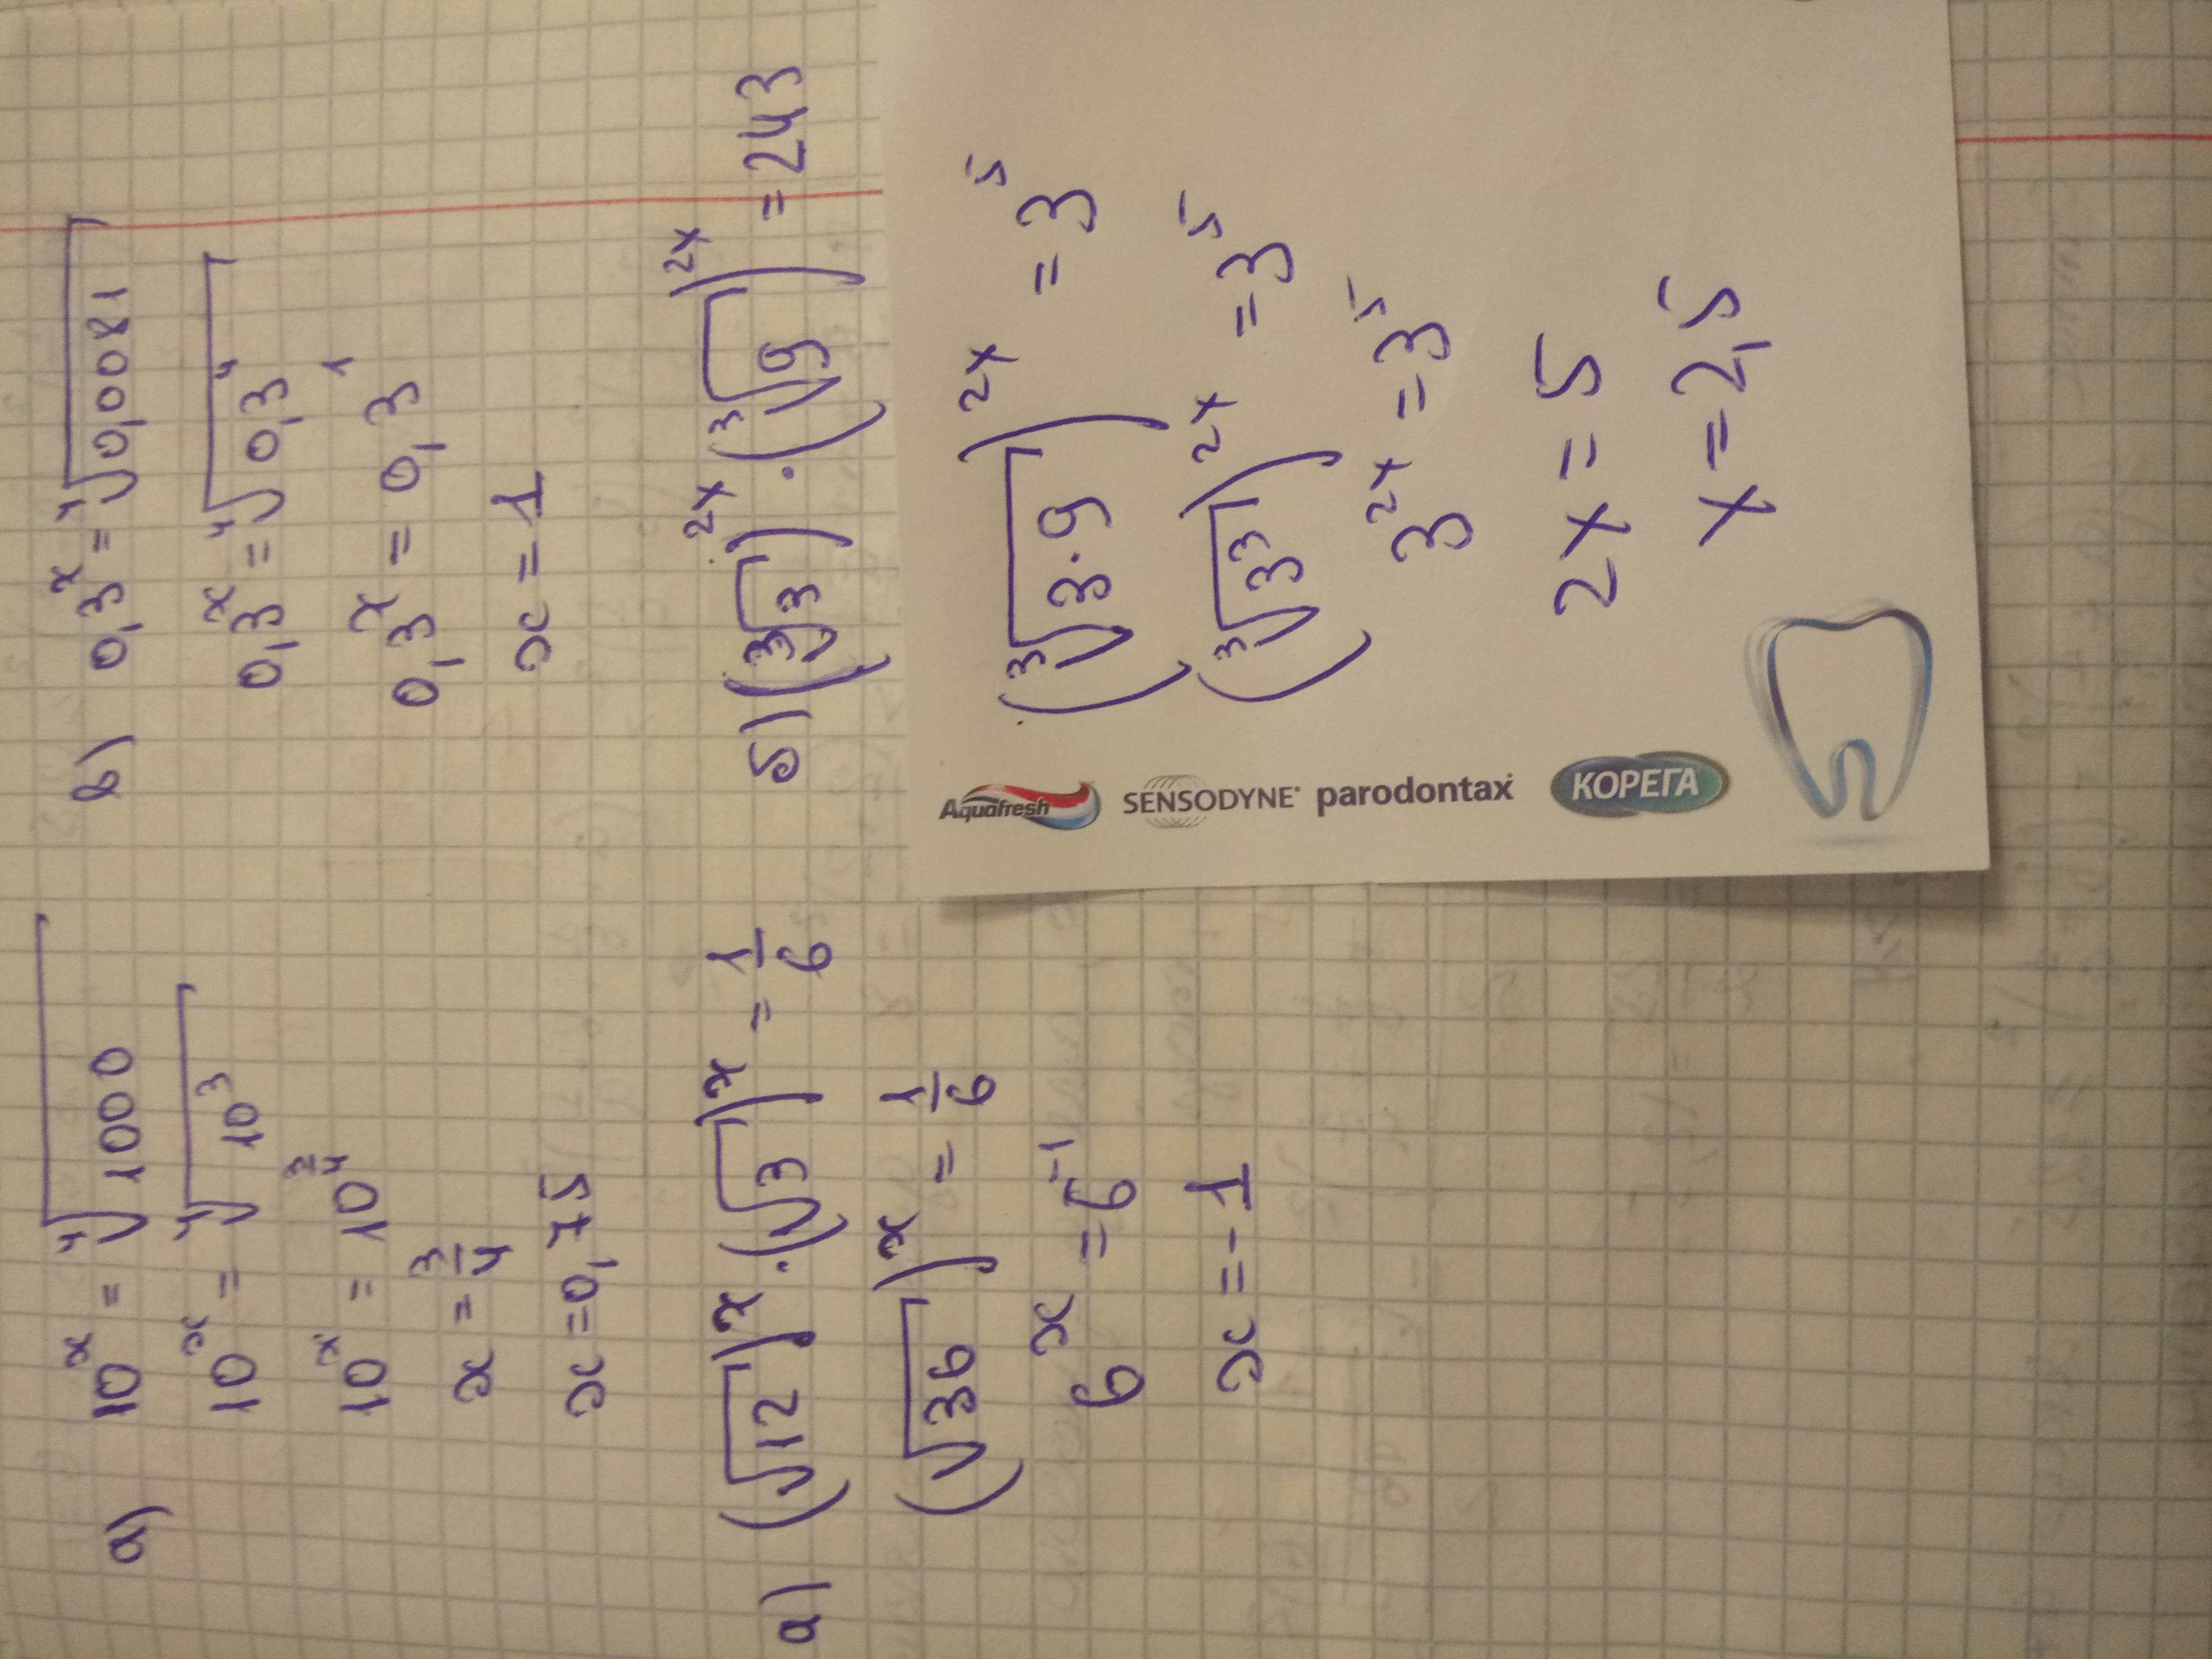 а) 10ˣ = ⁴√1000
10ˣ = ⁴√10³
10ˣ = 10^(3/4)
x = 3/4
x = 0,75
б) 0,3ˣ = ⁴√0,0081
0,3ˣ = ⁴√0,3⁴
0,3ˣ = 0,3¹
x = 1
а) (√12)ˣ · (√3)ˣ = 1/6
(√36)ˣ = 1/6
6ˣ = 6⁻¹
x = -1
б) (³√3)²ˣ · (³√9)²ˣ = 243
(³√3·9)²ˣ = 3⁵
(³√3³)²ˣ = 3⁵
3²ˣ = 3⁵
2x = 5
x = 2,5
Aquafresh SENSODYNE® parodontax® КОРЕГА